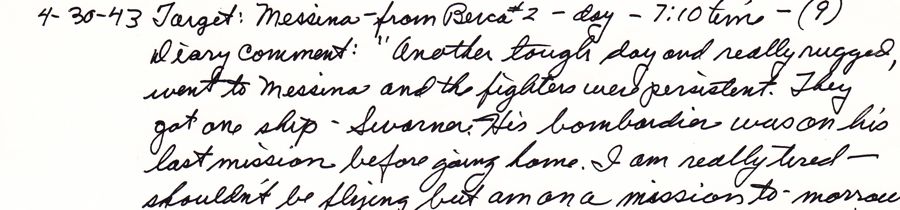 4-30-43 Target: Messina-from Berca #2 - day - 7:10 time - (9)
Diary comment: "Another tough day and really rugged,
went to Messina and the fighters were persistent. They
got one ship - Swarner. His bombardier was on his
last mission before going home. I am really tired -
shouldn't be flying but am on a mission to-morrow